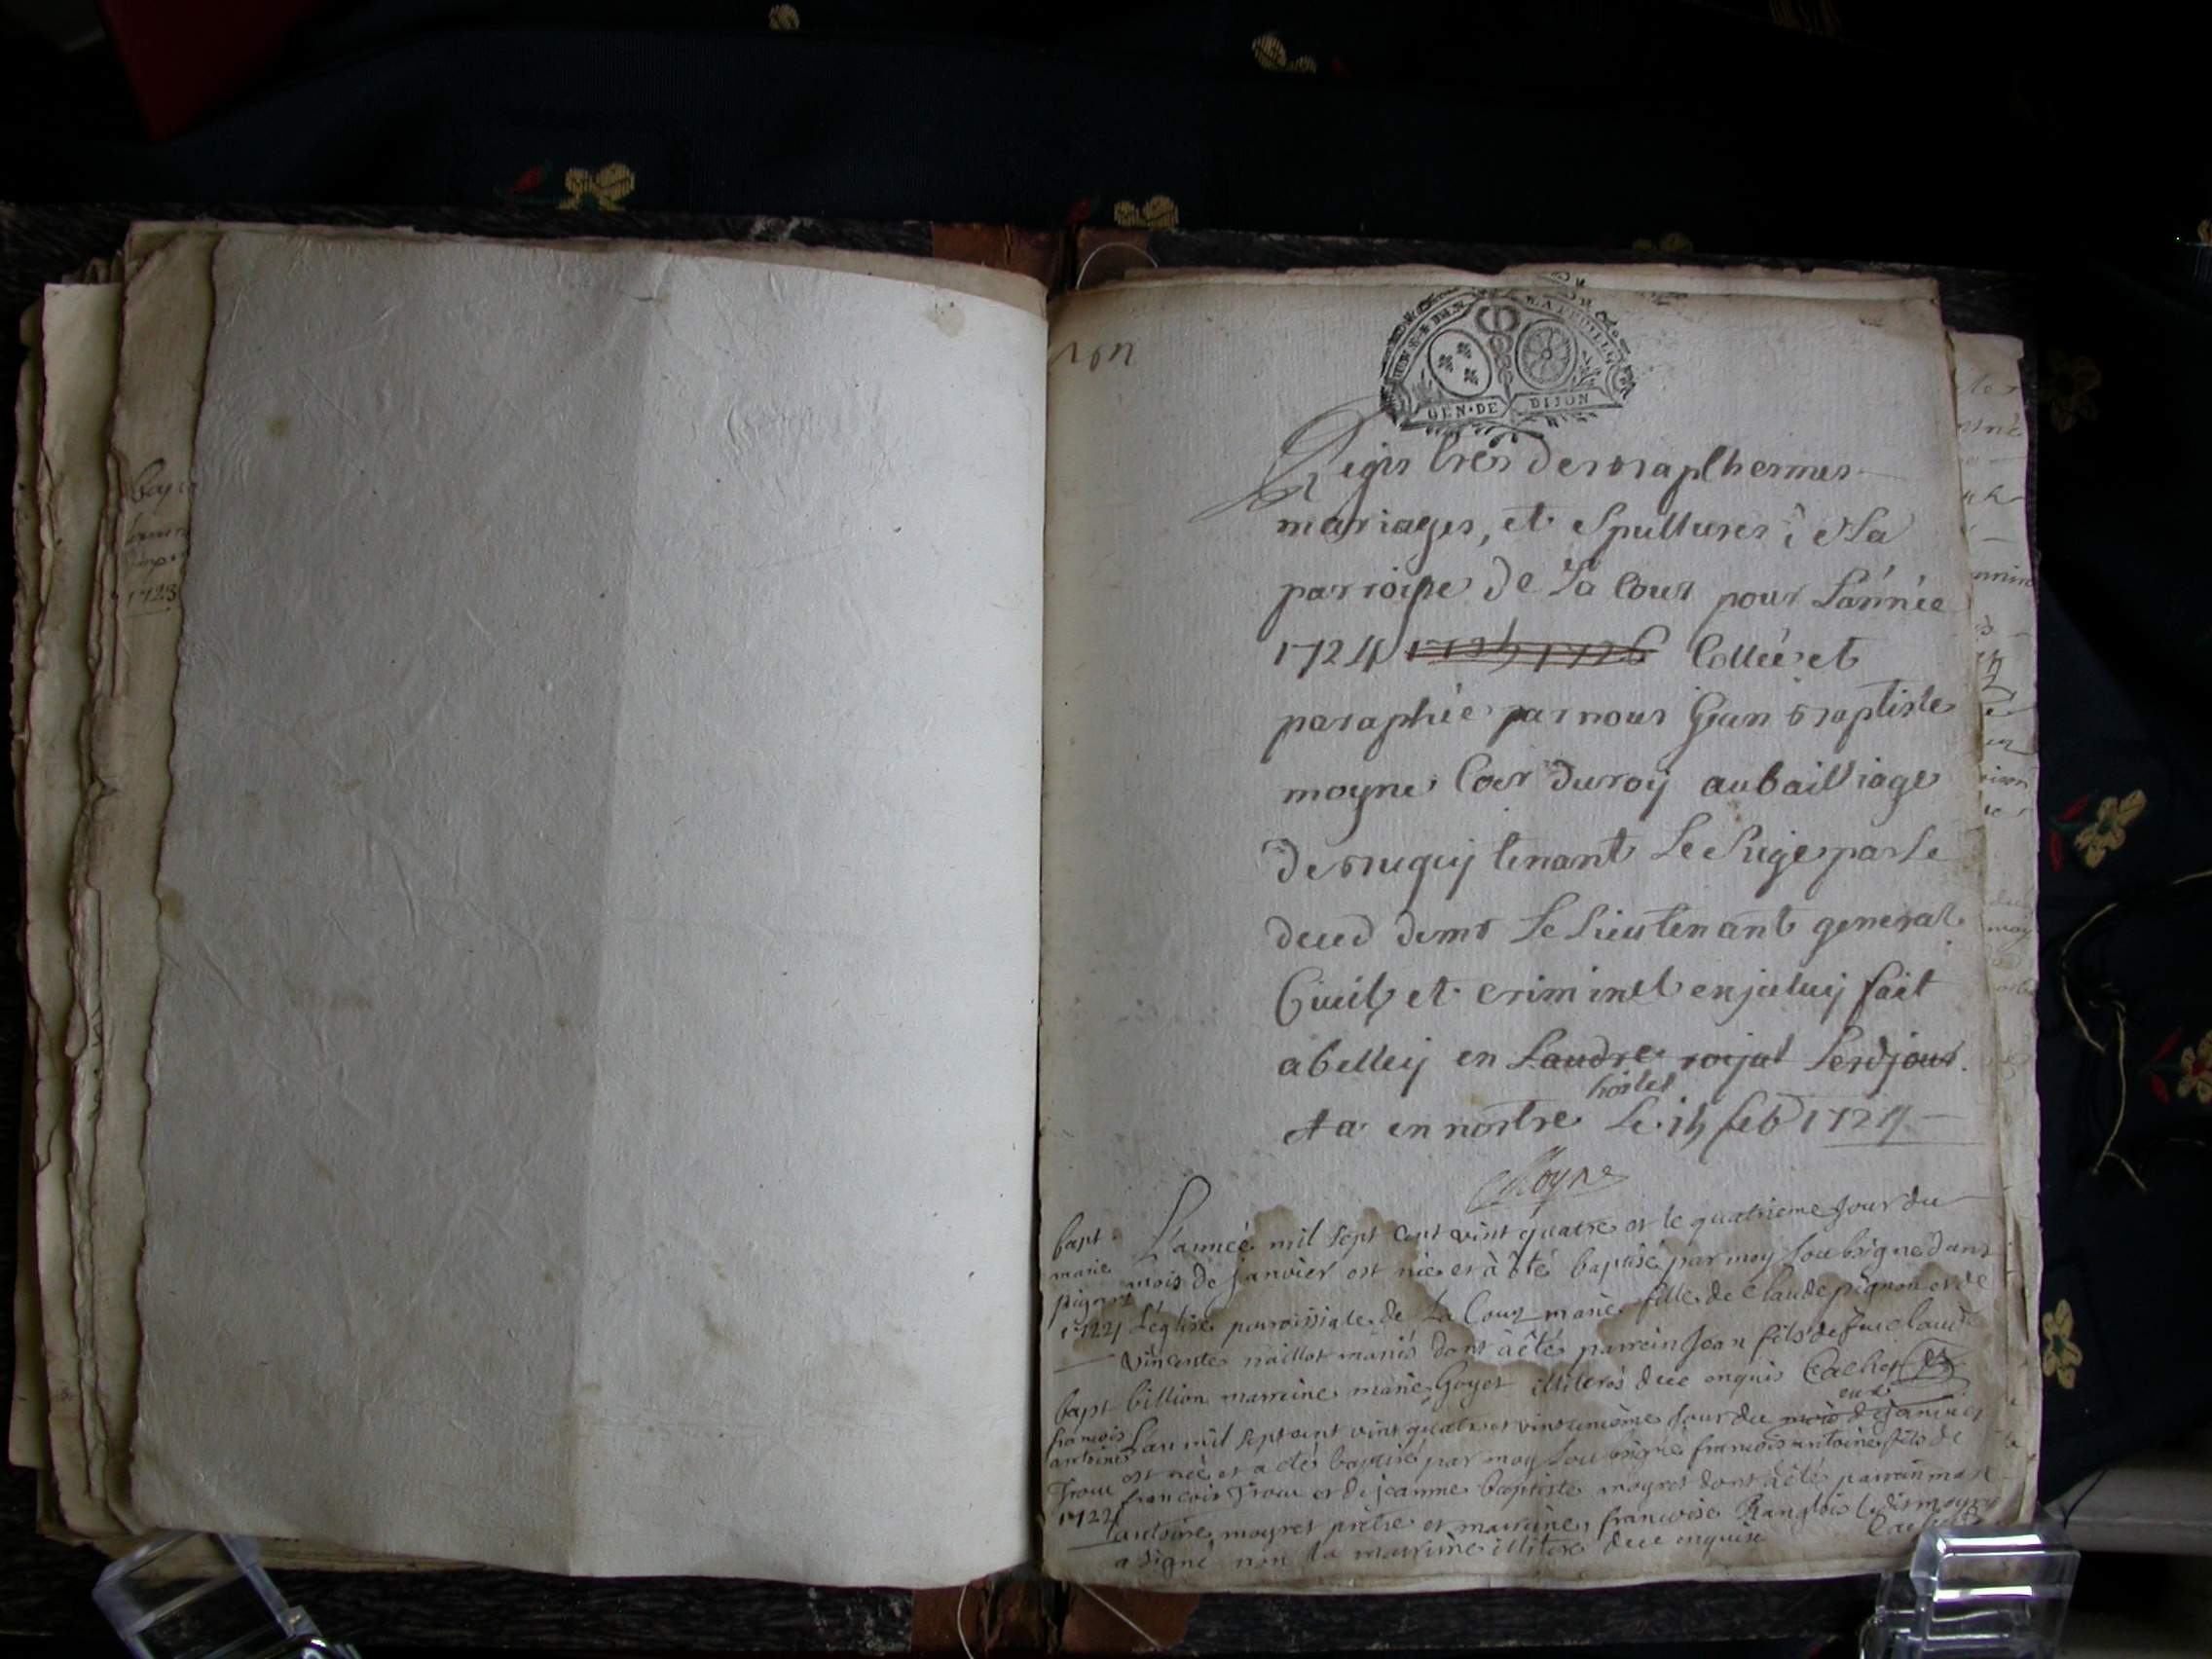 GEN·DE DIJON
Registres des bapthesmes
mariages, et Spultures de La
parroisse de La Cour pour L'année
1724 1725 1726 Cottée et
paraphée par nous Jean baptiste
moyne Coer du roy au bailliage
de bugey tenant Le Siege par Le
deced de mr Le Lieutenant general
Civil et criminel en jceluy fait
a belley en L'audre royal Lesd jour
hostel
et a en nostre Le 15 feb 1724
Moyne
bapt
marie
pignon
1724
L'année mil sept cent vint quatre et le quatrieme jour du
mois de janvier est née et à été baptisé par moy soubsigné dans
L'eglise paroissiale de La Cour marie fille de claude pignon et de
Vincente naillot mariés dont à été parrein Jean fils de feu claude
billion marreine marie Goyet illiterés due enquis Cachet
bapt
francois
antoine
Trouc
1724
L'an mil sept cent vint quatre et vintunième jour du mois de janvier
est né et a été baptisé par moy soubsigné francois antoine fils de
francois Trouc et de jeanne baptiste moyret dont à été parrain
antoine moyret prêtre et marreine francoise Ranglois ledit moyret
a signé non la marreine illitere due enquise